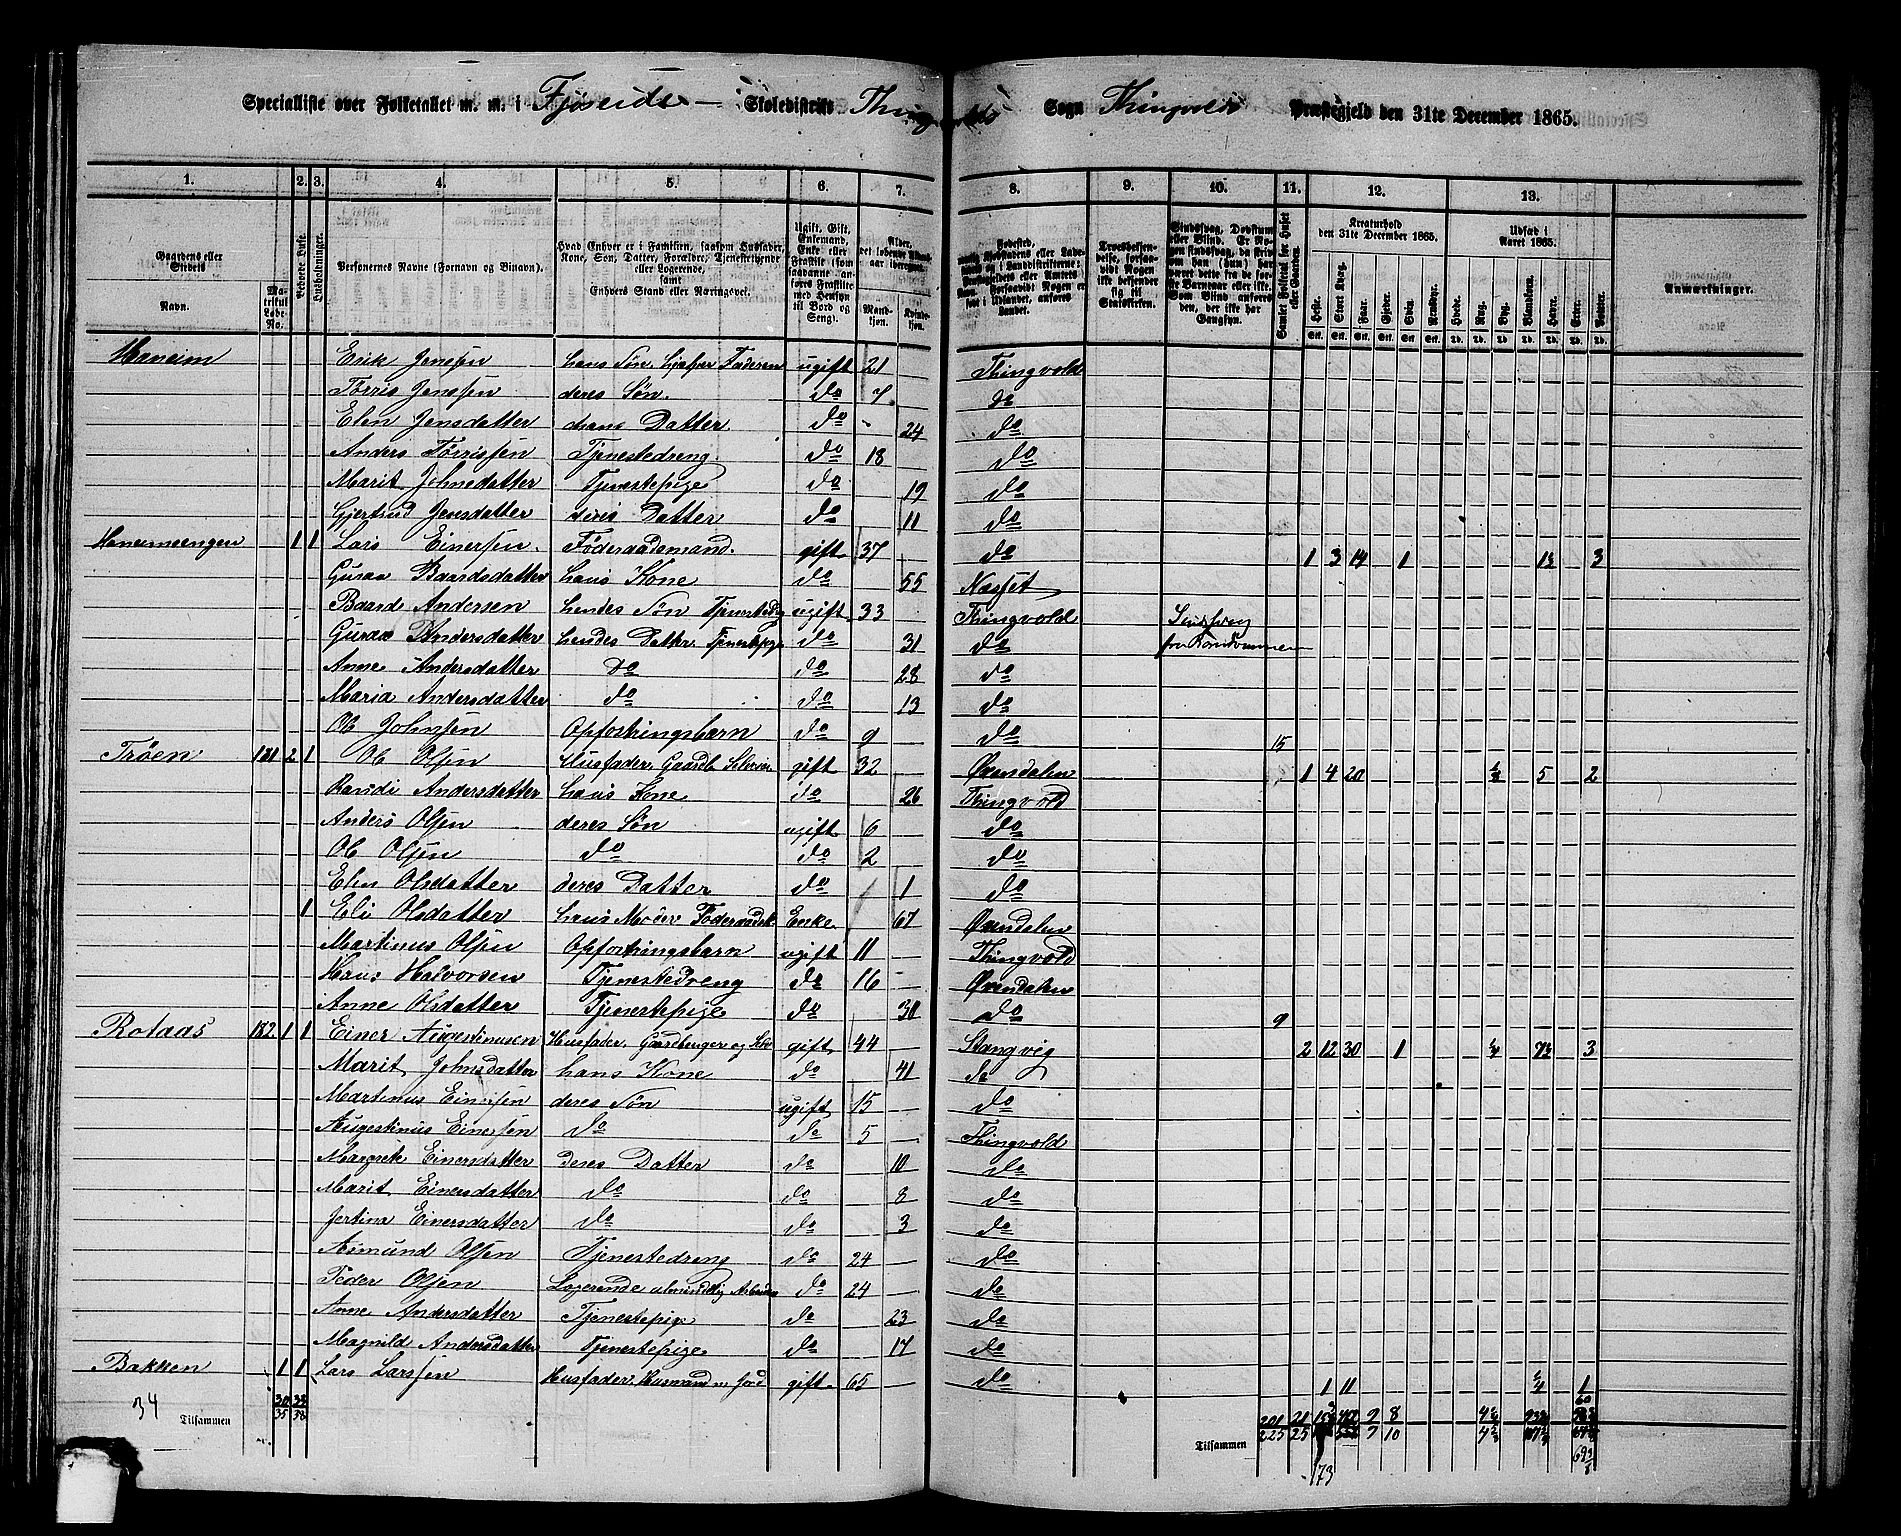 Specialliste over Folketallet m. m. i Fjøseids Skoledistrikt Thingvolds Sogn Thingvolds Præstegjeld den 31te December 1865.
1. 2. 3. 4. 5. 6. 7. 8. 9. 10. 11. 12. 13.
Gaardens eller Stedets Navn. Matrikul Løbe-No. Beboede Huse. Husholdninger. Personernes Navne (Fornavn og Binavn). Hvad Enhver er i Familien, saasom Husfader, Kone, Søn, Datter, Forældre, Tjenestetyende eller Logerende, samt Enhvers Stand eller Næringsvei. Alder, det løbende Alders-aar iberegnet. Mand-kjøn. Kvinde-kjøn. Kreaturhold den 31te December 1865. Udsæd i Aaret 1865. Anmærkninger.
Haneim Erik Jensen hans Søn, hjælper Faderen ugift 21 Thingvold
Tørris Jensen deres Søn. do 7 do
Elen Jensdatter hans Datter do 24 do
Anders Tørrissen Tjenestedreng. do 18 do
Marit Johnsdatter Tjenestepige do 19 do
Gjertrud Jensdatter deres Datter do 11 do
Haneimsengen 1 1 Lars Einersen. Føderaadsmand. gift 37 do 1 3 14 1 1½ 3
Guraa Baardsdatter hans Kone do 55 Næsset
Baard Andersen hendes Søn ugift 33 Thingvold Sindssvag
Guraa Andersdatter hendes Datter. Tjenestepige do 31 do fra Barndommen
Anne Andersdatter do do 28 do
Maria Andersdatter do do 13 do
Ole Johnsen Opfostringsbarn do 9 do 15
Trøen 181 2 1 Ole Olsen Husfader, Gaardb. Selveier gift 32 Øxendalen 1 4 20 5 2
Randi Andersdatter hans Kone do 26 Thingvold
Anders Olsen deres Søn ugift 6 do
Ole Olsen do do 2 do
Elen Olsdatter deres Datter do 1 do
1 Eli Olsdatter hans Moder Føderaadsk. Enke 67 Øxendalen
Martinus Olsen Opfostringsbarn ugift 11 Thingvold
Hans Halvorsen Tjenestedreng do 16 Øxendalen
Anne Olsdatter Tjenestepige do 30 do 9
Rotaas 182 1 1 Einer Augestinusen Husfader, Gaardbruger og Selv. gift 44 Stangvig 2 12 30 1 7½ 3
Marit Johnsdatter hans Kone do 41 do
Martinus Einersen deres Søn ugift 15 do
Augestinus Einersen do do 5 Thingvold
Margrete Einersdatter deres Datter do 10 do
Marit Einersdatter do do 8 do
Jertina Einersdatter do do 3 do
Asmund Olsen Tjenestedreng do 24 do
Peder Olsen Logerende almindelig Arbeider do 24 do
Anne Andersdatter Tjenestepige do 23 do
Magnild Andersdatter Tjenestepige do 17 do
Bakken 1 1 Lars Larssen Husfader, Husmand m. Jord gift 65 do 1 11 1
34 Tilsammen 35 38
201 21 9 8
Tilsammen 225 25 7 10
173